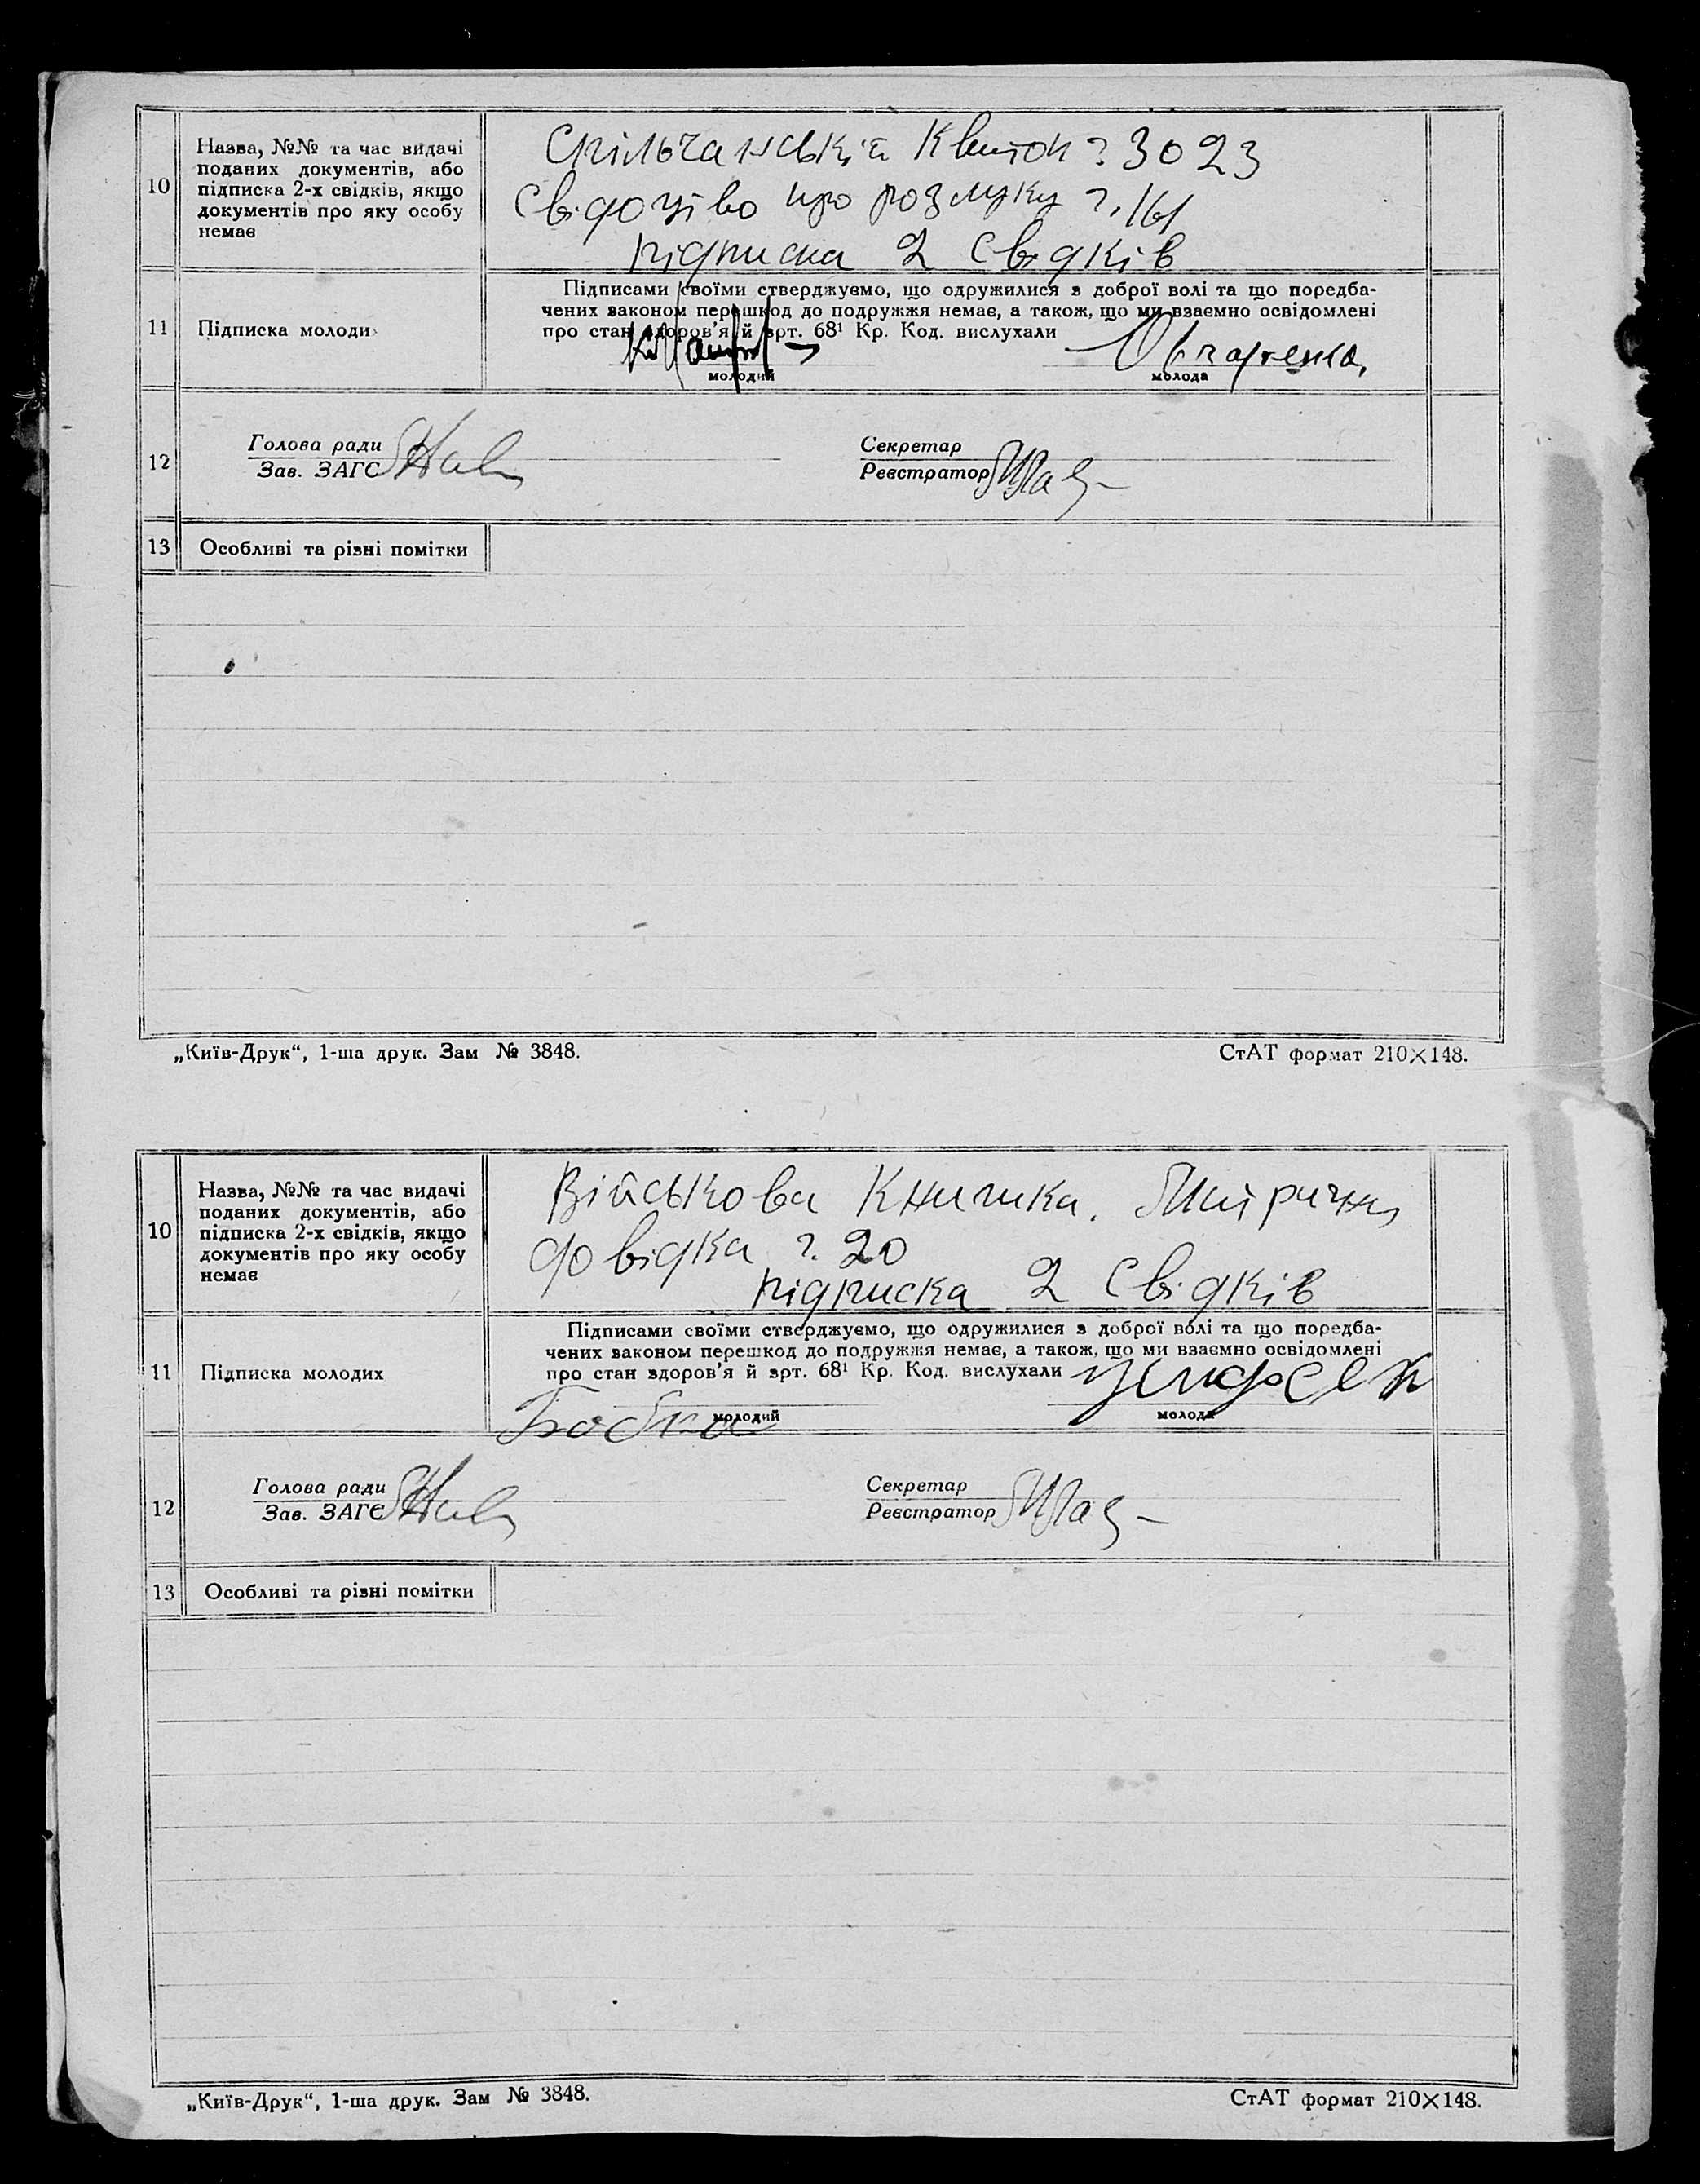 10
Назва, №№ та час видачі
поданих документів, або
підписка 2-х свідків, якщо
документів про яку особу
немає
Спільчанський Квиток ч 3023
Свідоцтво про розлуку ч. 161
підписка 2 свідків
11
Підписка молоди
Підписами своїми стверджуємо, що одружилися з доброї волі та що поредба-
чених законом перешкод до подружжя немає, а також, що ми взаємно освідомлені
про стан здоров'я й арт. 68¹ Кр. Код. вислухали
молодий
молода
12
Голова ради
Зав. ЗАГС
Секретар
Реєстратор
13
Особливі та різні помітки
„Київ-Друк“, 1-ша друк. Зам № 3848.
СтАТ формат 210×148.
10
Назва, №№ та час видачі
поданих документів, або
підписка 2-х свідків, якщо
документів про яку особу
немає
Військова Книжка.
довідка ч. 20
підписка 2 свідків
11
Підписка молодих
Підписами своїми стверджуємо, що одружилися з доброї волі та що поредба-
чених законом перешкод до подружжя немає, а також, що ми взаємно освідомлені
про стан здоров'я й арт. 68¹ Кр. Код. вислухали
молодий
молода
12
Голова ради
Зав. ЗАГС
Секретар
Реєстратор
13
Особливі та різні помітки
„Київ-Друк“, 1-ша друк. Зам № 3848.
СтАТ формат 210×148.